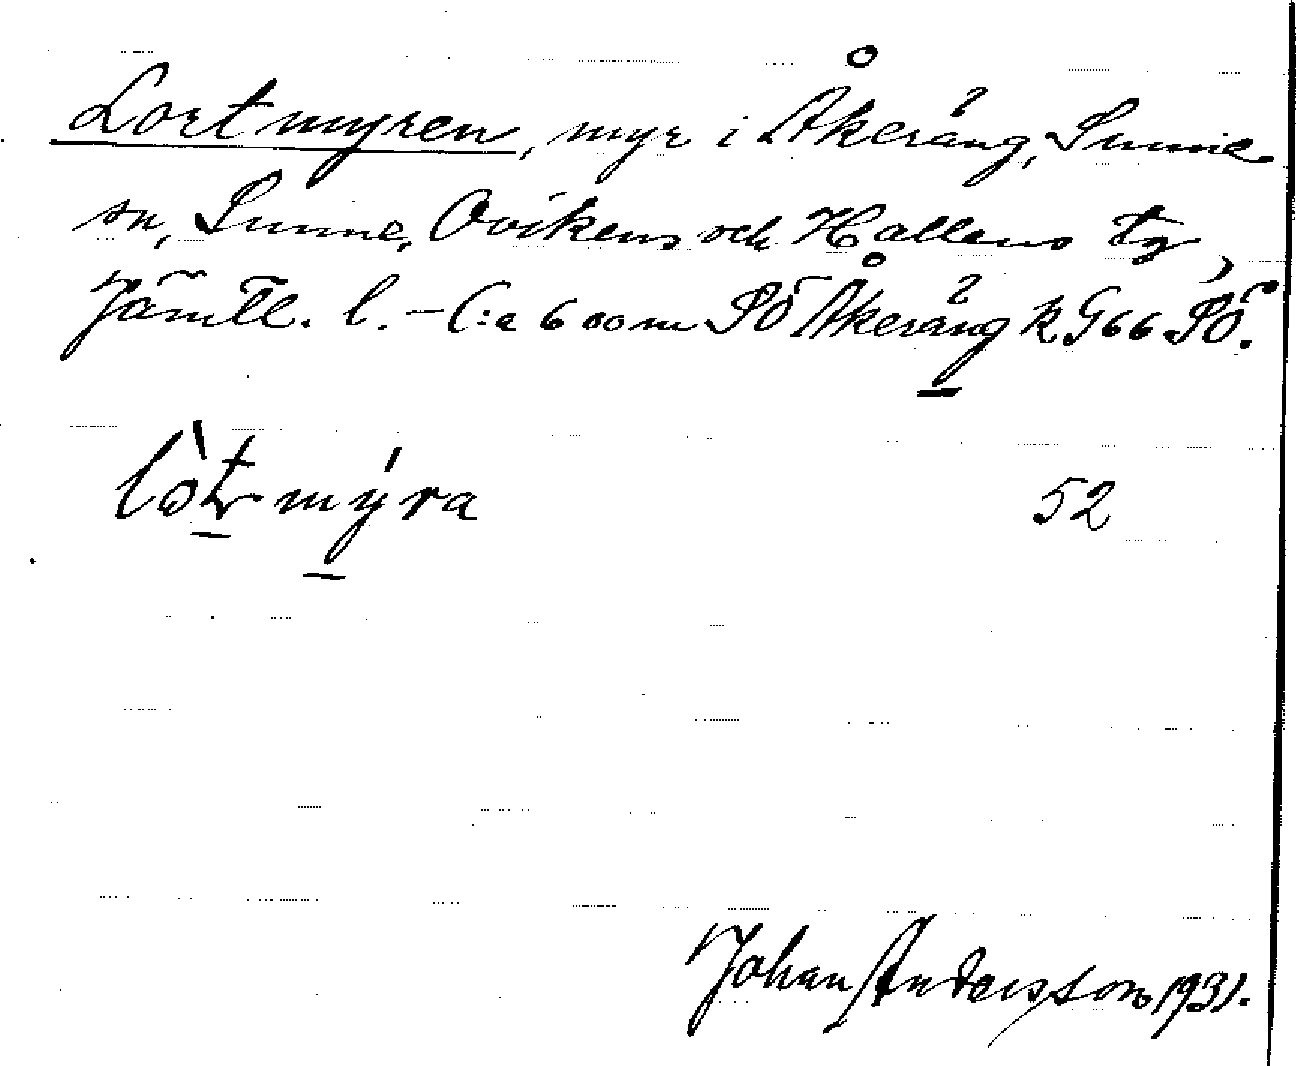 Lortmyren, myr i Åkeräng, Sunne
sn, Sunne, Ovikens och Hallens tg,
Jämtl. l. – C:a 600 m SÖ Åkeräng k G66 SÖ.
lòtmýra 52
Johan Andersson 1931.